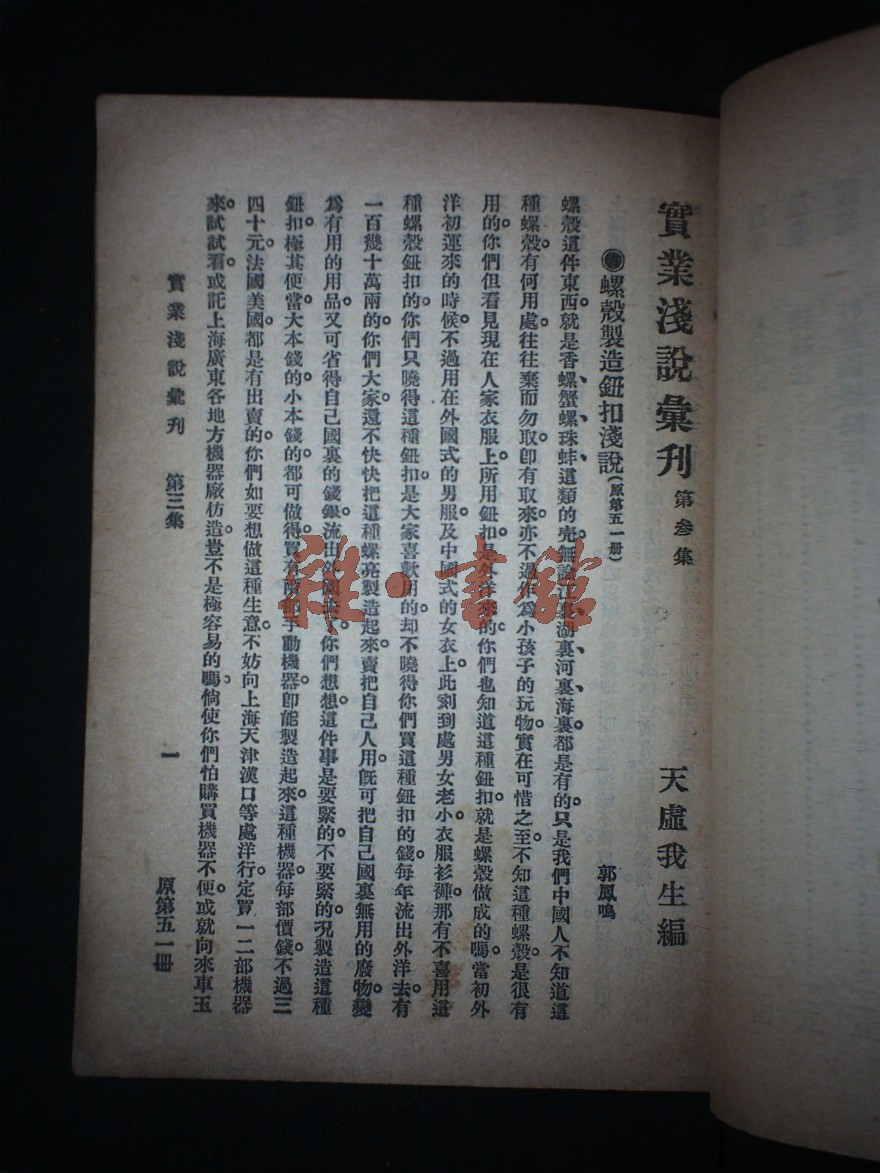 實業淺說彙刊 第參集 天虛我生編
螺殼製造鈕扣淺說(原第五一册) 郭鳳鳴
螺殼這件東西。就是香螺、蟹螺、珠蚌這類的壳。無論江裏、湖裏、河裏、海裏。都是有的。只是我們中國人不知道這
種螺殼有何用處。往往棄而勿取。卽有取來。亦不過作爲小孩子的玩物。實在可惜之至。不知這種螺殼。是很有
用的。你們但看見現在人家衣服上所用鈕扣。是外洋來的。你們也知道這種鈕扣。就是螺殼做成的嗎。當初外
洋初運來的時候。不過用在外國式的男服及中國式的女衣上。此刻到處男女老小。衣服衫褲。那有不喜用這
種螺殼鈕扣的。你們只曉得這種鈕扣。是大家喜歡用的。却不曉得你們買這種鈕扣的錢。每年流出外洋去。有
一百幾十萬兩的。你們大家。還不快快把這種螺壳製造起來。賣把自己人用。旣可把自己國裏無用的廢物。變
爲有用的用品。又可省得自己國裏的錢。銀流出外國去了。你們想想。這件事是要緊的。不要緊的。况製造這種
鈕扣。極其便當。大本錢的。小本錢的。都可做得。買有兩部手動機器。卽能製造起來。這種機器。每部價錢。不過三
四十元。法國美國。都是有出賣的。你們如要想做這種生意。不妨向上海天津漢口等處洋行。定買一二部機器
來。試試看。或託上海廣東各地方機器廠仿造。豈不是極容易的嗎。倘使你們怕購買機器不便。或就向來車玉
實業淺說彙刊 第三集 一 原第五一册
雜·書館